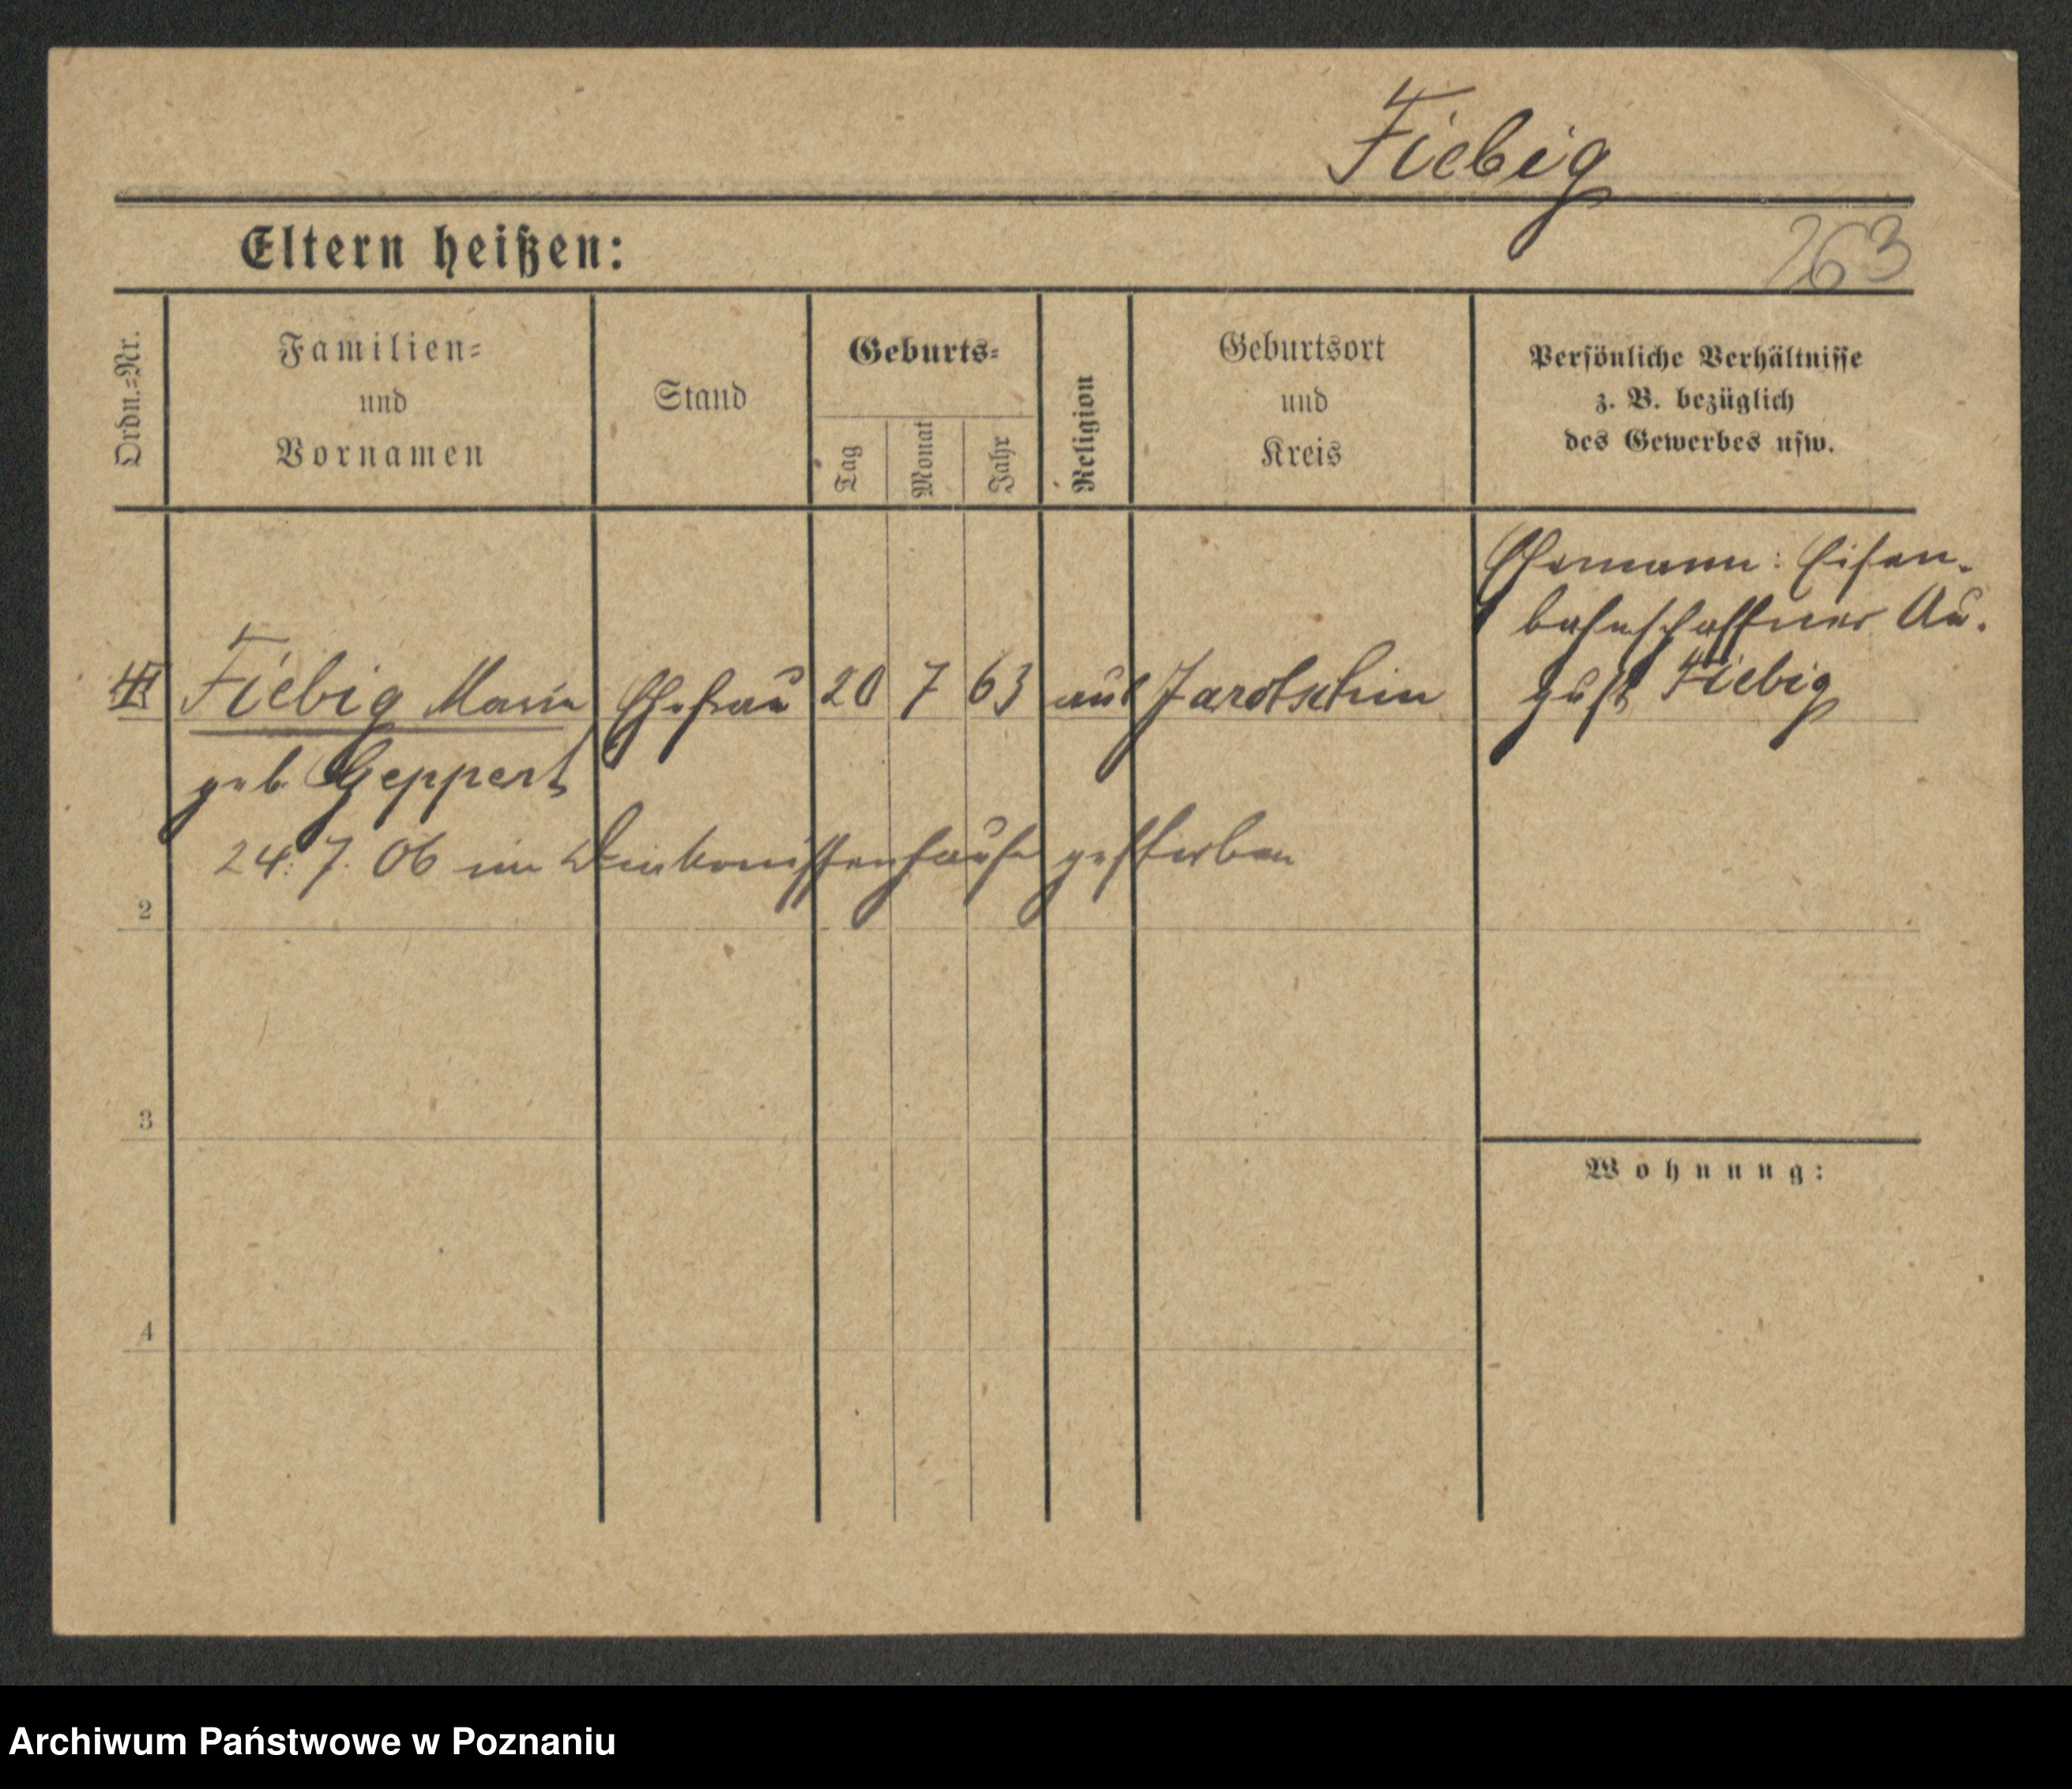 Fiebig
Eltern heißen:
263
Ordn.-Nr.
Familien-
und
Vornamen
Stand
Geburts-
Tag
Monat
Jahr
Religion
Geburtsort
und
Kreis
Persönliche Verhältnisse
z. B. bezüglich
des Gewerbes usw.
Ehemann: Eisen-
bahnschaffner Au-
gust Fiebig
Fiebig Marie Ehefrau 20 7 63 Jarotschin
geb Geppert
24. 7. 06 im Diakonissenhause gestorben
2
3
Wohnung:
4
Archiwum Państwowe w Poznaniu